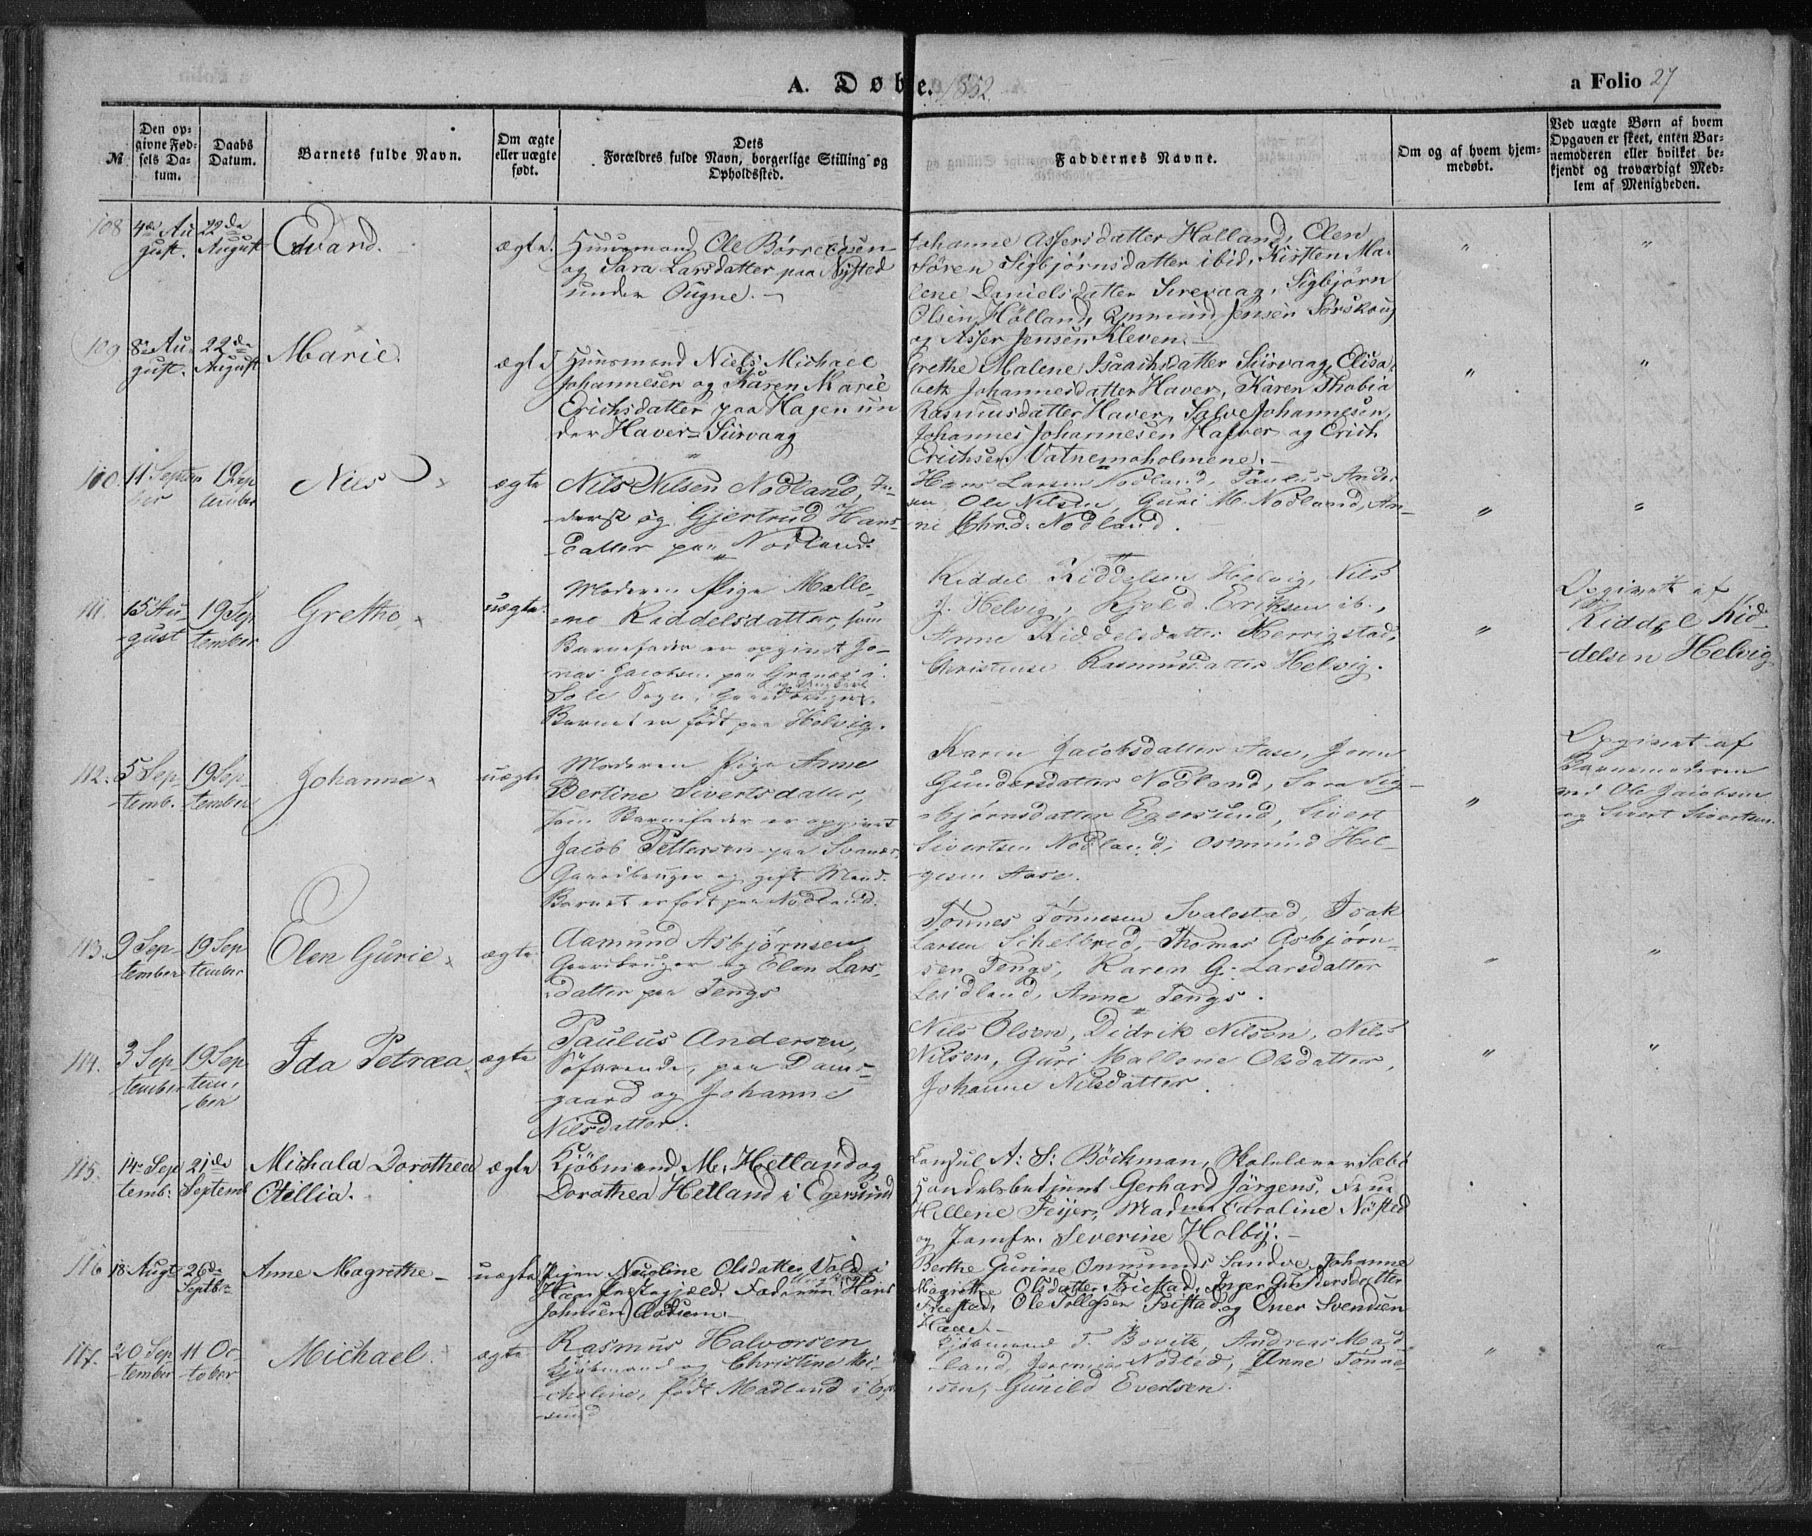 A. Døbte. 1852.
a Folio 27
№
Den opgivne Fødsels Datum.
Daabs Datum.
Barnets fulde Navn.
Om ægte eller uægte født.
Dets Forældres fulde Navn, borgerlige Stilling og Opholdssted.
Faddernes Navne.
Om og af hvem hjemmedøbt.
Ved uægte Børn af hvem Opgaven er skeet, enten Barnemoderen eller hvilket bekjendt og troværdigt Medlem af Menigheden.
108 4de August. 22de August Edvard. ægte.
Huusmand Ole Børreldsen
og Sara Larsdatter paa Nysted
under Ougne. -
Johanne Assersdatter Holland, Elen
Søren Sigbjørnsdatter ibid, Kirsten Ma-
lene Danielsdatter Sirevaag, Sigbjørn
Olsen Holland, Ommund Jensen Sørskoug
og Asser Jensen Kleven.
109 8de August. 22de August Marie. ægte
Huusmand Niels Michael
Johannesen og Karen Marie
Erichsdatter paa Hagen un
der Haver-Siirvaag
Grethe Malene Isaachsdatter Siirvaag, Elisa-
beth Johannesdatter Haver, Karen Thobia
Rasmusdatter Haver, Salve Johannesen,
Johannes Johannesen Haver og Erich
Erichsen Vatnemoholmene. -
110. 11 September 19 September Nils ægte
Nils Nilsen Nodland, In-
derst og Gjertrud Hans-
datter paa Nodland.
Hans Larsen Nodland, Paulus Ander
sen, Ole Nilsen, Guri M. Nodland, An-
ne Chrd. Nodland.
111. 15 August 19 September Grethe. uægte.
Moderen Pige Malle-
ne Riddelsdatter, som
Barnefader er opgivet Jo-
nas Jacobsen paa Granæs i
Sole Sogn,
og Ungkarl
Barnet er født paa Helvig.
Riddel Riddelsen Helvig, Nils
J. Helvig, Kjeld Eriksen ib.,
Anne Riddelsdatter Herrigstad,
Christense Rasmusdatter Helvig.
Opgivet af
Riddel Rid
-delsen Helvig
112. 5 Septemb. 19 September Johanne uægte
Moderen Pige Anne
Bertine Sivertsdatter,
som Barnefader er opgivet
Jacob Pettersen paa Svanæs
Gaardbruger og gift Mand.
Barnet er født paa Nodland.
Karen Jacobsdatter Aase, Jorn
Gundersdatter Nodland, Sara Sig-
bjørnsdatter Egersund, Sivert
Sivertsen Nodland, Osmund Hel-
gesen Aase.
Opgivet af
Barnemoderen
ved Ole Jacobsen
og Sivert Sivertsen.
113. 9 September 19 September Elen Gurie ægte
Aamund Asbjørnsen
Gaardbruger og Elen Lars-
datter paa Tengs
Tønnes Tønnesen Svalestad, Isak
Larsen Schelbred, Thomas Asbjørn-
sen Tengs, Karen G. Larsdatter
Leidland, Anne Tengs.
114. 3 September 19 September Ida Petræa ægte
Paulus Andersen,
Søfarende, paa Dams-
gaard og Johanne
Nilsdatter.
Nils Olsen, Didrik Nilsen, Nils
Nilsen, Guri Mallene Olsdatter,
Johanne Nilsdatter.
115. 14 Septemb: 21de Septemb Michala Dorothea Otillia. ægte
Kjøbmand M. Hetland og
Dorothea Hetland i Egersund
Consul A: S: Böckman, Skolelærer Sæbö
Handelsbetjent Gerhard Jürgens, Frue
Hellene Feyer, Madme Caroline Nøsted
og Jomfr. Severine Holby. -
116 18 Augt 26de Septbr Anne Magrethe - uægte
Pigen Neoline Olsdatter Vold i
Haae Præstegjeld. Faderen Hans
Johnsen
Berthe Gurine Ommunds Sandve, Johanne
Magrethe Olsdatter Friestad, Inger Gundersdatter
Friestad, Ole Tollefsen Fristad og Oner Svendsen
Haae -
117. 20 September 11 October Michael. ægte
Rasmus Halvorsen
Kjøbmand og Christine Mi-
choline, født Madland i Eger
sund
Kjøbmand T. Bovitz, Andreas Mad
land, Jeremias Nodted, Anne Tønne
sen, Gunild Evertsen.